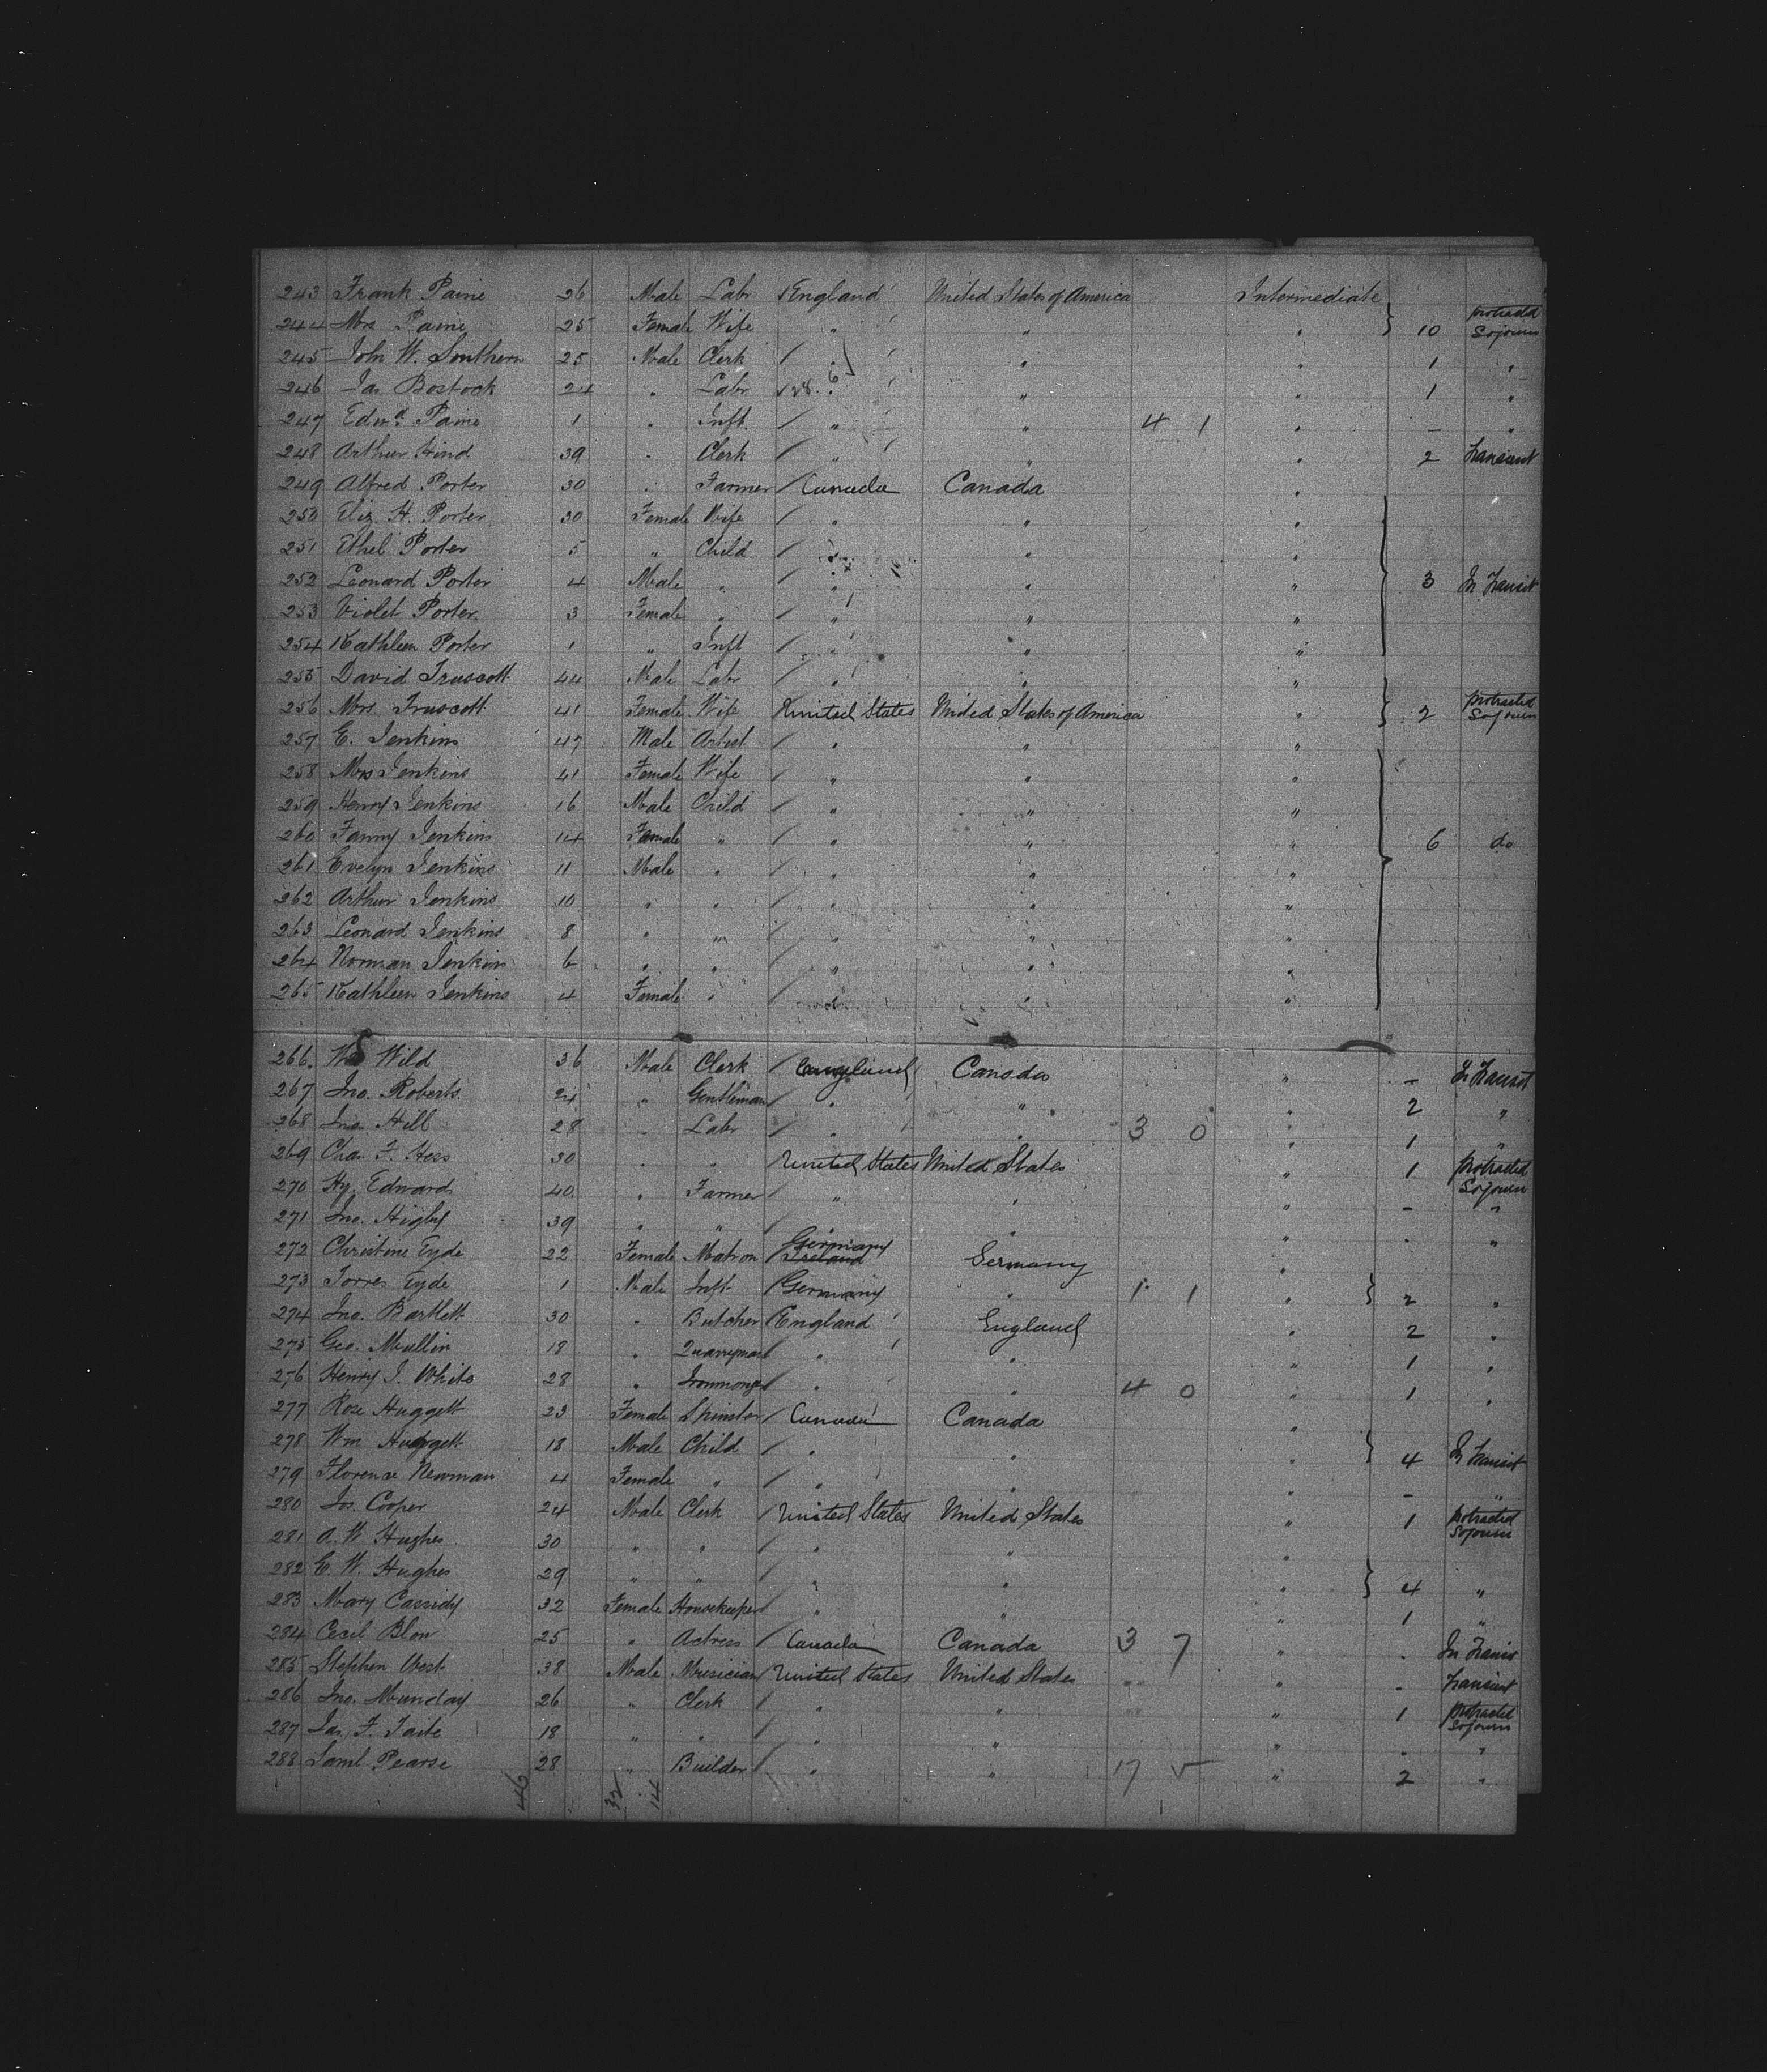 243 Frank Paine 26 Male Labr England United States of America Intermediate
244 Mrs Paine 25 Female Wife " " " } 10 protracted Sojourn
245 John W. Southern 25 Male Clerk / " " " 1 "
246 Jas Bostock 24 " Labr " " " 1 "
247 Edwd. Paine 1 " Inft " " 4 1 " – "
248 Arthur Hind 39 " Clerk " " " 2 transient
249 Alfred Porter 30 " Farmer / Canada Canada "
250 Eliz. H. Porter 30 Female Wife / " " "
251 Ethel Porter 5 " Child / " " "
252 Leonard Porter 4 Male " / " " " 3 In Transit
253 Violet Porter 3 Female " / " " "
254 Kathleen Porter 1 " Inft / " " "
255 David Truscott 44 Male Labr / " " "
256 Mrs. Truscott 41 Female Wife United States United States of America " } 2 protracted Sojourn
257 E. Jenkins 47 Male Artist / " " "
258 Mrs Jenkins 41 Female Wife / " " "
259 Henry Jenkins 16 Male Child / " " "
260 Fanny Jenkins 14 Female " / " " " 6 do
261 Evelyn Jenkins 11 Male " / " " "
262 Arthur Jenkins 10 " " / " " "
263 Leonard Jenkins 8 " " / " " "
264 Norman Jenkins 6 " " / " " "
265 Kathleen Jenkins 4 Female " / " " "
266. Wild 36 Male Clerk / England Canada " – In Transit
267 Jno. Roberts 24 " Gentleman / " " " 2 "
268 Jno. Hill 28 " Labr / " " 3 0 " 1 "
269 Chas. F. Hess 30 " " United States United States " 1 protracted Sojourn
270 Hy. Edwards 40 " Farmer / " " " – "
271 Jno. Higby 39 " " / " " " - "
272 Christine Eyde 22 Female Matron Germany Ireland Germany "
273 Torres Eyde 1 Male Inft Germany " 1 1 " } 2 "
274 Jno. Bartlett 30 " Butcher England England " 2 "
275 Geo. Mullin 18 " Quarryman / " " " 1 "
276 Henry J. White 28 " Ironmonger / " " 4 0 " 1 "
277 Rose Huggett 23 Female Spinster / Canada Canada "
278 Wm Huggett 18 Male Child / " " " } 4 In Transit
279 Florence Newman 4 Female " / " " " – "
280 Jos. Cooper 24 Male Clerk / United States United States " 1 protracted Sojourn
281 A. W. Hughes 30 " " / " " "
282 E. W. Hughes 29 " " / " " " } 4 "
283 Mary Cassidy 32 Female Housekeeper / " " " 1 "
284 Cecil Blow 25 " Actress / Canada Canada 3 7 " - In Transit
285 Stephen West 38 Male Musician United States United States " - transient
286 Jno. Munday 26 " Clerk / " " " 1 protracted Sojourn
287 Jas. F. Taite 18 " " / " " " - "
288 Saml Pearse 28 " Builder / " " 17 " 2 "
46 32 14